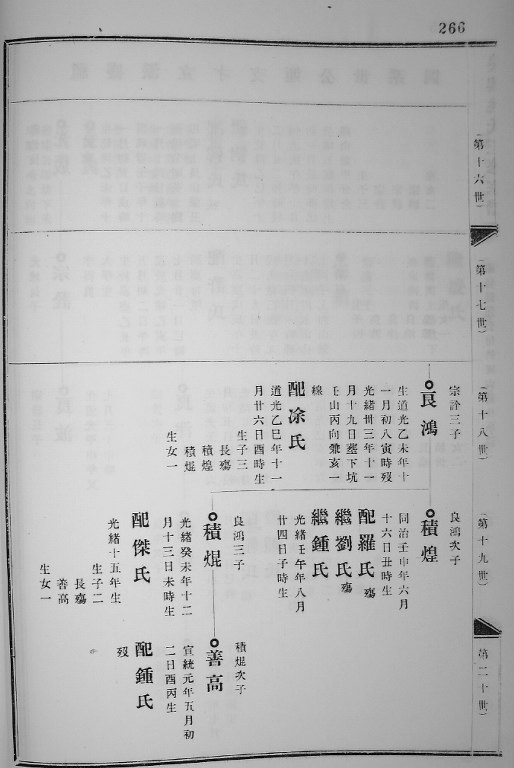 266
（第十六世）
（第十七世）
（第十八世）
（第十九世）
（第二十世）
宗許三子
良鴻
生道光乙未年十
一月初八寅時歿
光緒卅三年十一
月十九日塟下坑
壬山丙向兼亥一
線
配凃氏
道光乙巳年十一
月廿六日酉時生
生子三
長殤
積煌
積焜
生女一
良鴻次子
積煌
同治壬申年六月
十六日丑時生
配羅氏殤
繼劉氏殤
繼鍾氏
光緒壬午年八月
廿四日子時生
良鴻三子
積焜
光緒癸未年十二
月十三日未時生
配傑氏
光緒十五年生
生子二
長殤
善高
生女一
積焜次子
善高
宣統元年五月初
二日酉丙生
配鍾氏
歿